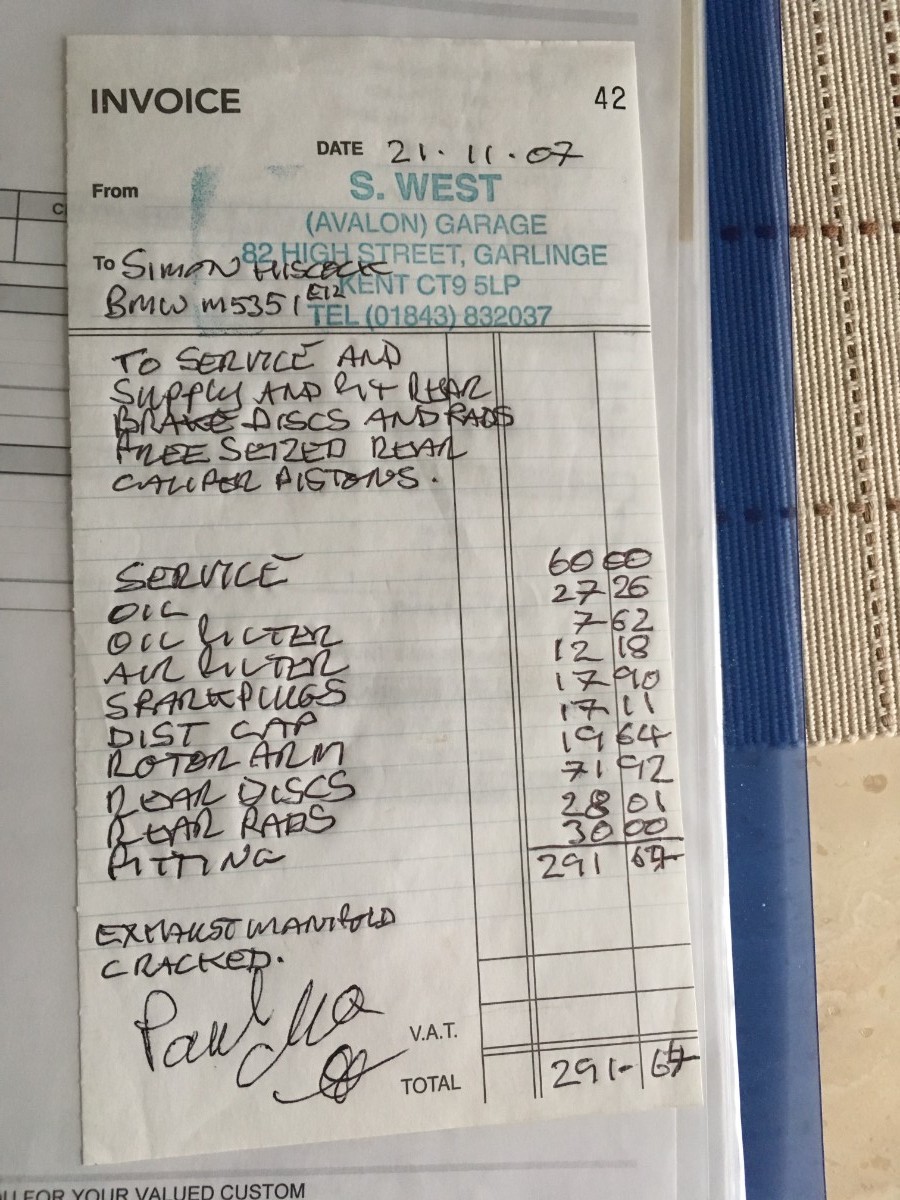 INVOICE 42
DATE 21.11.07
From S. WEST
(AVALON) GARAGE
82 HIGH STREET, GARLINGE
To SIMON HISCOCK
KENT CT9 5LP
BMW M535I E12
TEL (01843) 832037
TO SERVICE AND
SUPPLY AND FIT REAR
BRAKE DISCS AND PADS
FREE SEIZED REAR
CALIPER PISTONS.
SERVICE 60 00
OIL 27 26
OIL FILTER 7 62
AIR FILTER 12 18
SPARKPLUGS 17 90
DIST CAP 17 11
ROTOR ARM 19 64
REAR DISCS 71 92
REAR PADS 28 01
FITTING 30 00
291 64
EXHAUST MANIFOLD
CRACKED.
V.A.T.
TOTAL 291-64
FOR YOUR VALUED CUSTOM